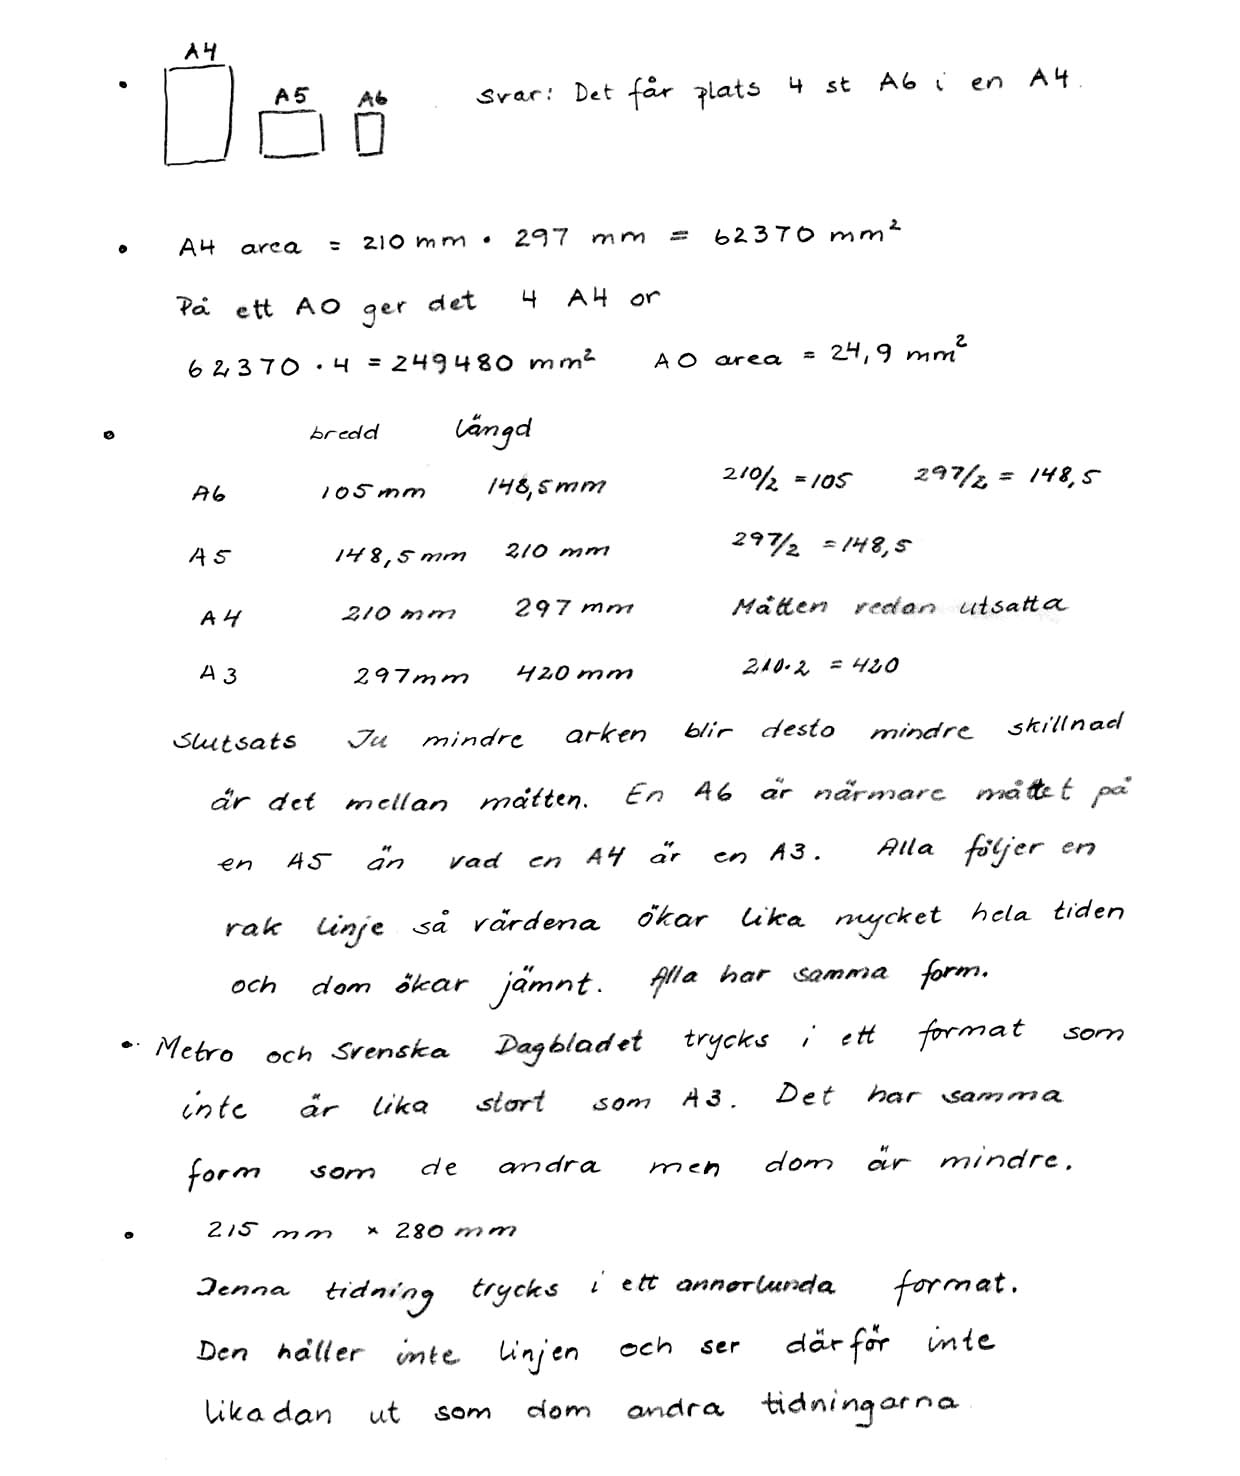 A4
A5 A6
• Svar: Det får plats 4 st A6 i en A4.
• A4 area = 210 mm • 297 mm = 62370 mm²
På ett A0 ger det 4 A4 or
62370 · 4 = 249480 mm² A0 area = 24,9 mm²
• bredd längd
A6 105 mm 148,5 mm 210/2 = 105 297/2 = 148,5
A5 148,5 mm 210 mm 297/2 = 148,5
A4 210 mm 297 mm Måtten redan utsatta
A3 297 mm 420 mm 210·2 = 420
Slutsats Ju mindre arken blir desto mindre skillnad
är det mellan måtten. En A6 är närmare måttet på
en A5 än vad en A4 är en A3. Alla följer en
rak linje så värdena ökar lika mycket hela tiden
och dom ökar jämnt. Alla har samma form.
• Metro och Svenska Dagbladet trycks i ett format som
inte är lika stort som A3. Det har samma
form som de andra men dom är mindre.
• 215 mm × 280 mm
Denna tidning trycks i ett annorlunda format.
Den håller inte linjen och ser därför inte
likadan ut som dom andra tidningarna